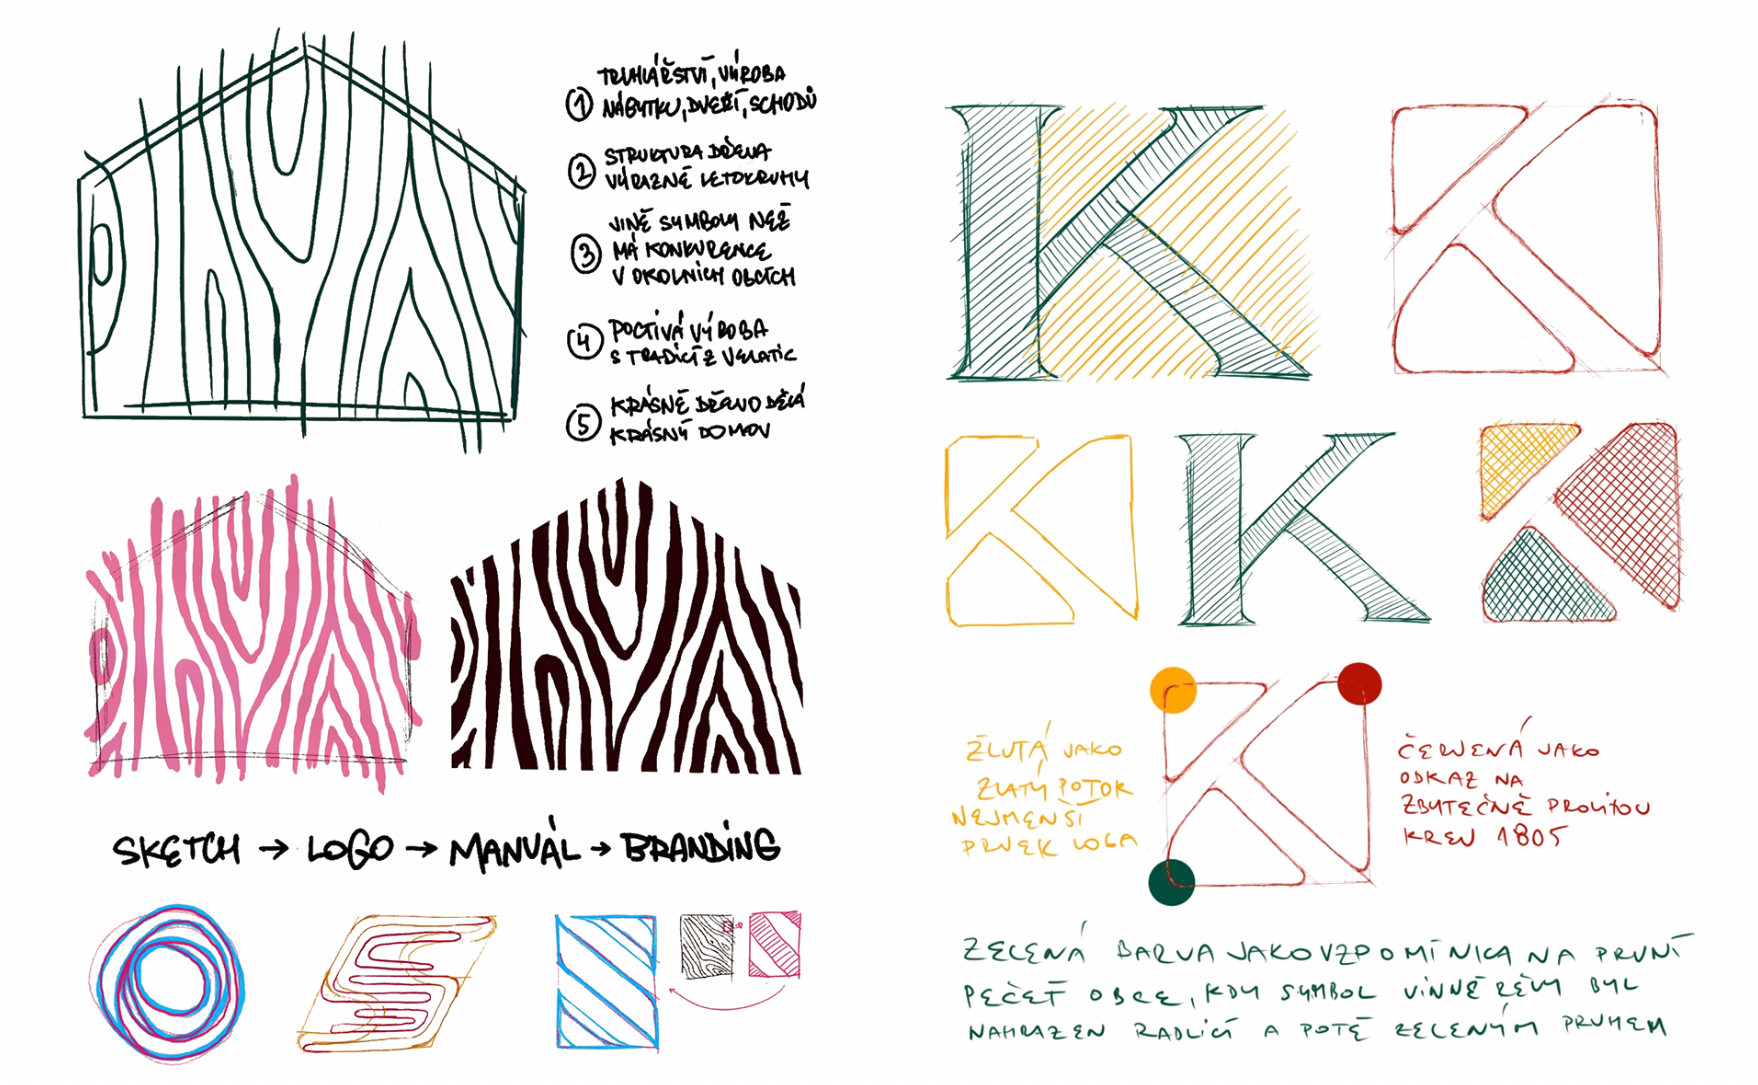 ① TRUHLÁŘSTVÍ, VÝROBA
NÁBYTKU, DVEŘÍ, SCHODŮ
② STRUKTURA DŘEVA
VÝRAZNÉ LETOKRUHY
③ JINÉ SYMBOLY NEŽ
MÁ KONKURENCE
V OKOLNÍCH OBCÍCH
④ POCTIVÁ VÝROBA
S TRADICÍ Z VELATIC
⑤ KRÁSNÉ DŘEVO DĚLÁ
KRÁSNÝ DOMOV
SKETCH → LOGO → MANUÁL → BRANDING
K
K
ŽLUTÁ JAKO
ZLATÝ POTOK
NEJMENŠÍ
PRVEK LOGA
ČERVENÁ JAKO
ODKAZ NA
ZBYTEČNĚ PROLITOU
KREV 1805
ZELENÁ BARVA JAKO VZPOMÍNKA NA PRVNÍ
PEČEŤ OBCE, KDY SYMBOL VINNÉ RÉVY BYL
NAHRAZEN RADLICÍ A POTÉ ZELENÝM PRUHEM